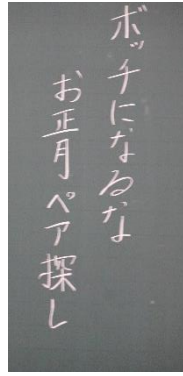 ボッチになるな
お正月ペア探し